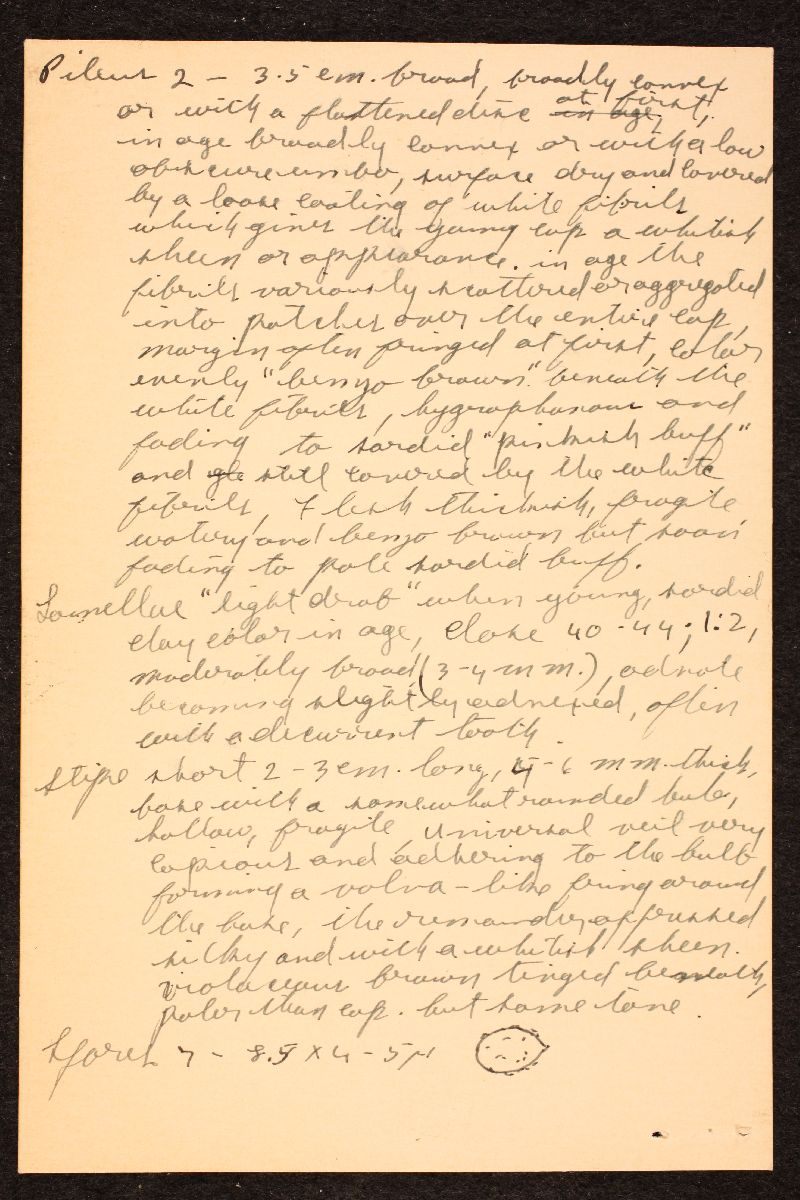 Pileus 2 - 3.5 cm. broad, broadly convex
or with a flattened disc in age, at first,
in age broadly convex or with a low
obscure umbo, surface dry and covered
by a loose coating of white fibrils
which gives the young cap a whitish
sheen or appearance. in age the
fibrils variously scattered or aggregated
into patches over the entire cap,
margin often fringed at first, color
evenly "benzo brown" beneath the
white fibrils, hygrophanous and
fading to sordid "pinkish buff"
and still covered by the white
fibrils, Flesh thickish, fragile
watery and benzo brown but soon
fading to pale sordid buff.
Lamellae "light drab" when young, sordid
clay color in age, close 40-44; 1:2,
moderately broad (3-4 mm.), adnate
becoming slightly adnexed, often
with a decurrent tooth.
Stipe short 2-3 cm. long, 4-6 mm. thick,
base with a somewhat rounded bulb,
hollow, fragile, universal veil very
copious and adhering to the bulb
forming a volva-like fring around
the base, the remainder appressed
silky and with a whitish sheen.
violaceous brown tinged beneath,
paler than cap. but same tone.
Spores 7 - 8.5 x 4 - 5 µ